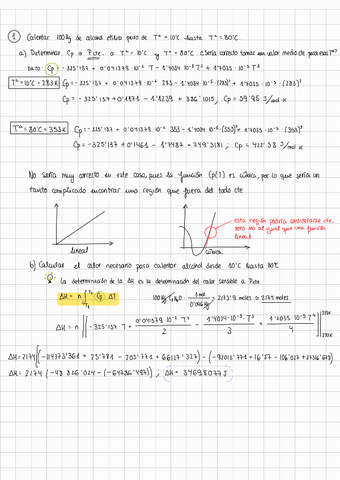 ① Calentar 100 kg de alcohol etílico puro de Tª = 10°C hasta Tª = 80°C.
a) Determinar Cp a P cte. a Tª = 10°C y Tª = 80°C ¿Sería correcto tomar un valor medio de para esas Tª?
DATO: Cp = -325'137 + 0'041379·10⁻² T - 1'4034·10⁻⁵ T² + 1'7035·10⁻⁵ T³
Tª = 10°C = 283 K Cp = -325'137 + 0'041379·10⁻² 283 - 1'4034·10⁻⁵·(283)² + 1'7035·10⁻⁵·(283)³
Cp = -325'137 + 0'1171 - 1'1239 + 386'1013; Cp = 59'95 J/mol·K
Tª = 80°C = 353 K Cp = -325'137 + 0'041379·10⁻² 353 - 1'4034·10⁻⁵·(353)² + 1'7035·10⁻⁵·(353)³
Cp = -325'137 + 0'1461 - 1'7487 + 749'3181; Cp = 422'58 J/mol·K
No sería muy correcto en este caso, pues la función Cp(T) es cúbica, por lo que sería un
tanto complicado encontrar una región que fuera del todo cte
lineal
cúbica
esta región podría considerarse cte,
pero no al igual que una función
lineal
b) Calcular el calor necesario para calentar alcohol desde 10°C hasta 80°C
La determinación de la ΔH es la denominación del calor sensible a P cte
ΔH = n ∫ Cp · dT
100 kg · 1 mol / 0'046 kg = 2173'9 moles ≈ 2174 moles
ΔH = n [[-325'137 T + 0'041379·10⁻² T² / 2 - 1'4034·10⁻⁵ T³ / 3 + 1'7035·10⁻⁵ T⁴ / 4]]
ΔH = 2174 [(-114773'361 + 25'781 - 205'771 + 66127'327) - (-92013'771 + 16'57 - 106'027 + 27316'613)]
ΔH = 2174 (-48 826'024 - (-64786'497)); ΔH = 34698077 J